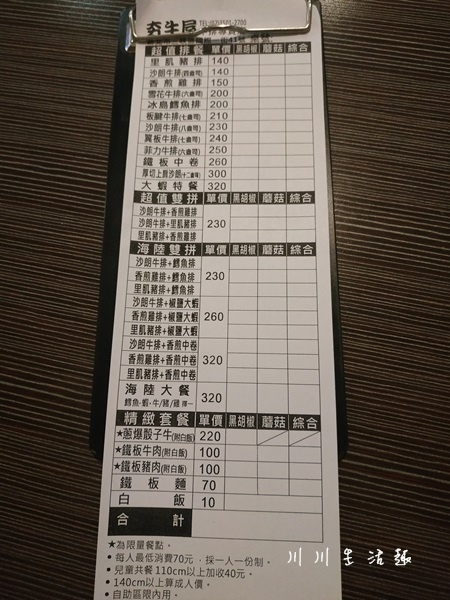 夯牛屋 TEL:(02)2501-7700
超值排餐 單價 黑胡椒 蘑菇 綜合
里肌豬排 140
沙朗牛排(四盎司) 140
香煎雞排 150
雪花牛排(六盎司) 200
冰島鱈魚排 200
板腱牛排(七盎司) 210
沙朗牛排(八盎司) 230
翼板牛排(七盎司) 240
菲力牛排(六盎司) 250
鐵板中卷 260
厚切上肩沙朗(十二盎司) 300
大蝦特餐 320
超值雙拼 單價 黑胡椒 蘑菇 綜合
沙朗牛排+香煎雞排
沙朗牛排+里肌豬排 230
里肌豬排+香煎雞排
海陸雙拼 單價 黑胡椒 蘑菇 綜合
沙朗牛排+鱈魚排
香煎雞排+鱈魚排 230
里肌豬排+鱈魚排
沙朗牛排+椒鹽大蝦
香煎雞排+椒鹽大蝦 260
里肌豬排+椒鹽大蝦
沙朗牛排+香煎中卷
香煎雞排+香煎中卷 320
里肌豬排+香煎中卷
海陸大餐 320
鱈魚+蝦+牛/豬/雞 擇一
精緻套餐 單價 黑胡椒 蘑菇 綜合
★蔥爆骰子牛(附白飯) 220
★鐵板牛肉(附白飯) 100
★鐵板豬肉(附白飯) 100
鐵板麵 70
白飯 10
合計
★為限量餐點。
•每人最低消費70元,採一人一份制。
•兒童共餐 110cm以上加收40元。
•140cm以上算成人價。
•自助區限內用。
川川生活趣